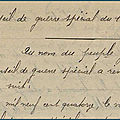 seil de guerre spécial du
Au nom des peuple
seil de guerre spécial a ren
suit :
mil neuf cent quatorze, le